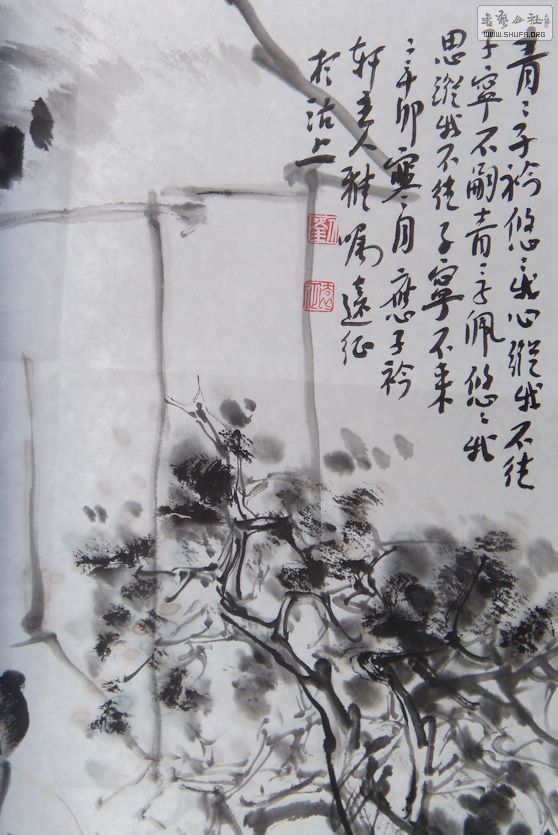 青〻子衿悠〻我心縱我不往
子寧不嗣青〻子佩悠〻我
思縱我不往子寧不来
辛卯寒月應子衿
軒主人雅嘱遠征
於沽上
劉
遠征
書藝公社
WWW.SHUFA.ORG